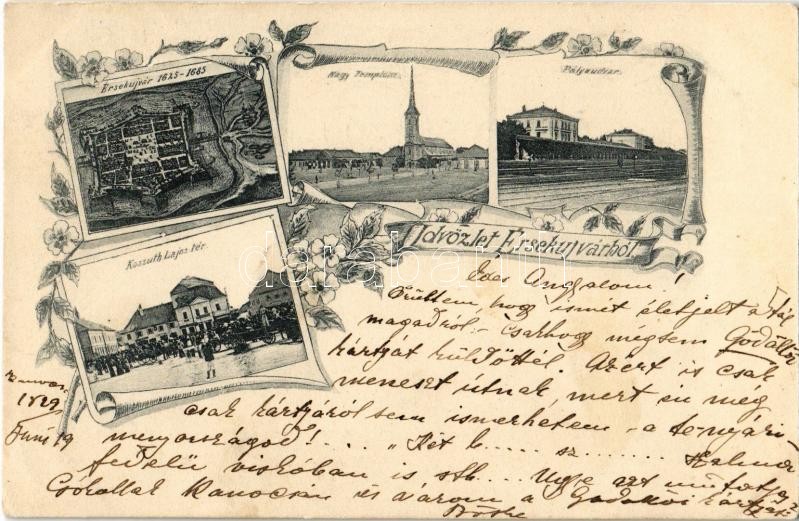 Érsekujvár 1625-1685
Nagy Templom.
Pályaudvar.
Kossuth Lajos tér.
Üdvözlet Érsekujvárból
darabanth
Édes Angyalom!
Örültem, hogy ismét életjelt adtál
magadról - csakhogy mégsem Gödöllői
kártyát küldöttél. Azért is csak
menesztutnak, mert én meg
csak kártyáról sem ismerhetem - a te nyári
menyországod! . . . „Két k.... sz....
fedelü viskóban is stb.... Ugye ezt mutatja?
Csókollak Kanocsán és várom a Gödöllői kártyát
1899
Juni 19